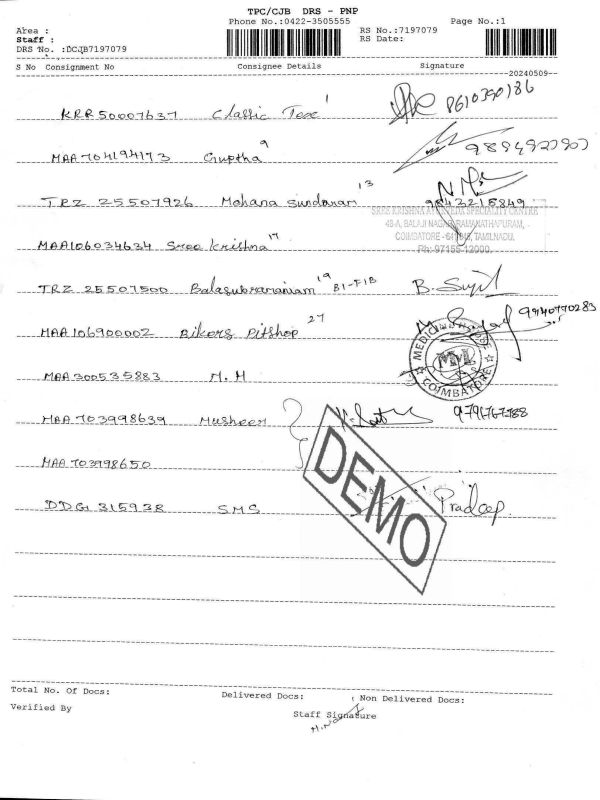 TPC/CJB DRS - PNP
Phone No.:0422-3505555 Page No.:1
Area : RS No.:7197079
Staff : RS Date:
DRS No. :DCJB7197079
S No Consignment No Consignee Details Signature
20240509
KRR50007637 Classic Texe 1 8610390186
MAA704194173 Guptha 9
TRZ 25507926 Mohana Sundaram 13 9843215849
SREE KRISHNA AYURVEDA SPECIALITY CENTRE
48-A, BALAJI NAGAR, RAMANATHAPURAM,
COIMBATORE - 641045, TAMILNADU.
Ph: 97155-12000.
MAA106034634 Sree Krishna 17
TRZ 25507500 Balasubramaniam 19 B1-F1B B. Sujil
MAA106900002 Bikers Pitshop 27 9940770283
COIMBATORE
MAA300535883 M. M
MAA703998639 Musheer 9791767788
MAA703998650
DDG 315938 SMS Pradeep
DEMO
Total No. Of Docs: Delivered Docs: Non Delivered Docs:
Verified By Staff Signature